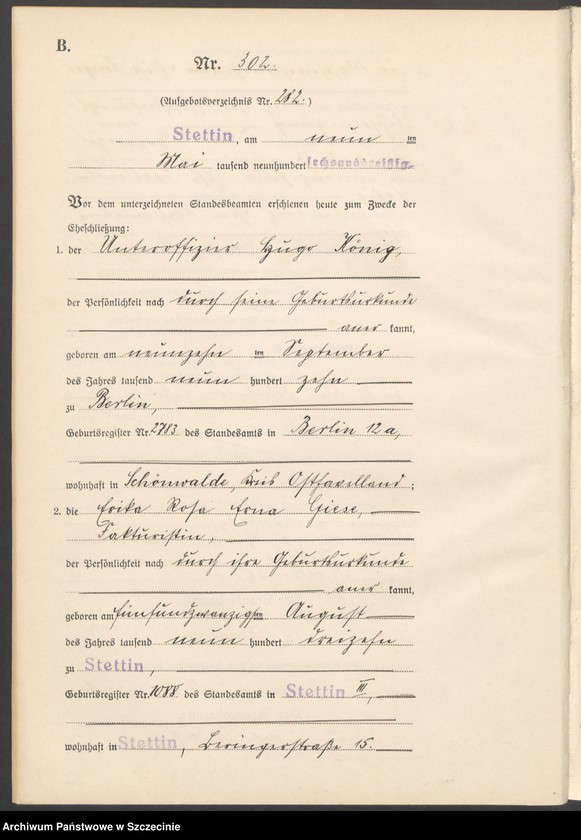 B.
Nr. 302.
(Aufgebotsverzeichnis Nr. 282.)
Stettin, am neun ten
Mai tausend neunhundert sechsunddreißig.
Vor dem unterzeichneten Standesbeamten erschienen heute zum Zwecke der
Eheschließung:
1. der Unteroffizier Hugo König,
der Persönlichkeit nach durch seine Geburtsurkunde
aner kannt,
geboren am neunzehn ten September
des Jahres tausend neun hundert zehn
zu Berlin,
Geburtsregister Nr. 2783 des Standesamts in Berlin 12a,
wohnhaft in Schönwalde, Kreis Osthavelland;
2. die Erika Rosa Erna Giese,
Fakturistin,
der Persönlichkeit nach durch ihre Geburtsurkunde
aner kannt,
geboren am fünfundzwanzigsten August
des Jahres tausend neun hundert dreizehn
zu Stettin,
Geburtsregister Nr. 1088 des Standesamts in Stettin III,
wohnhaft in Stettin, Beringerstraße 15.
Archiwum Państwowe w Szczecinie